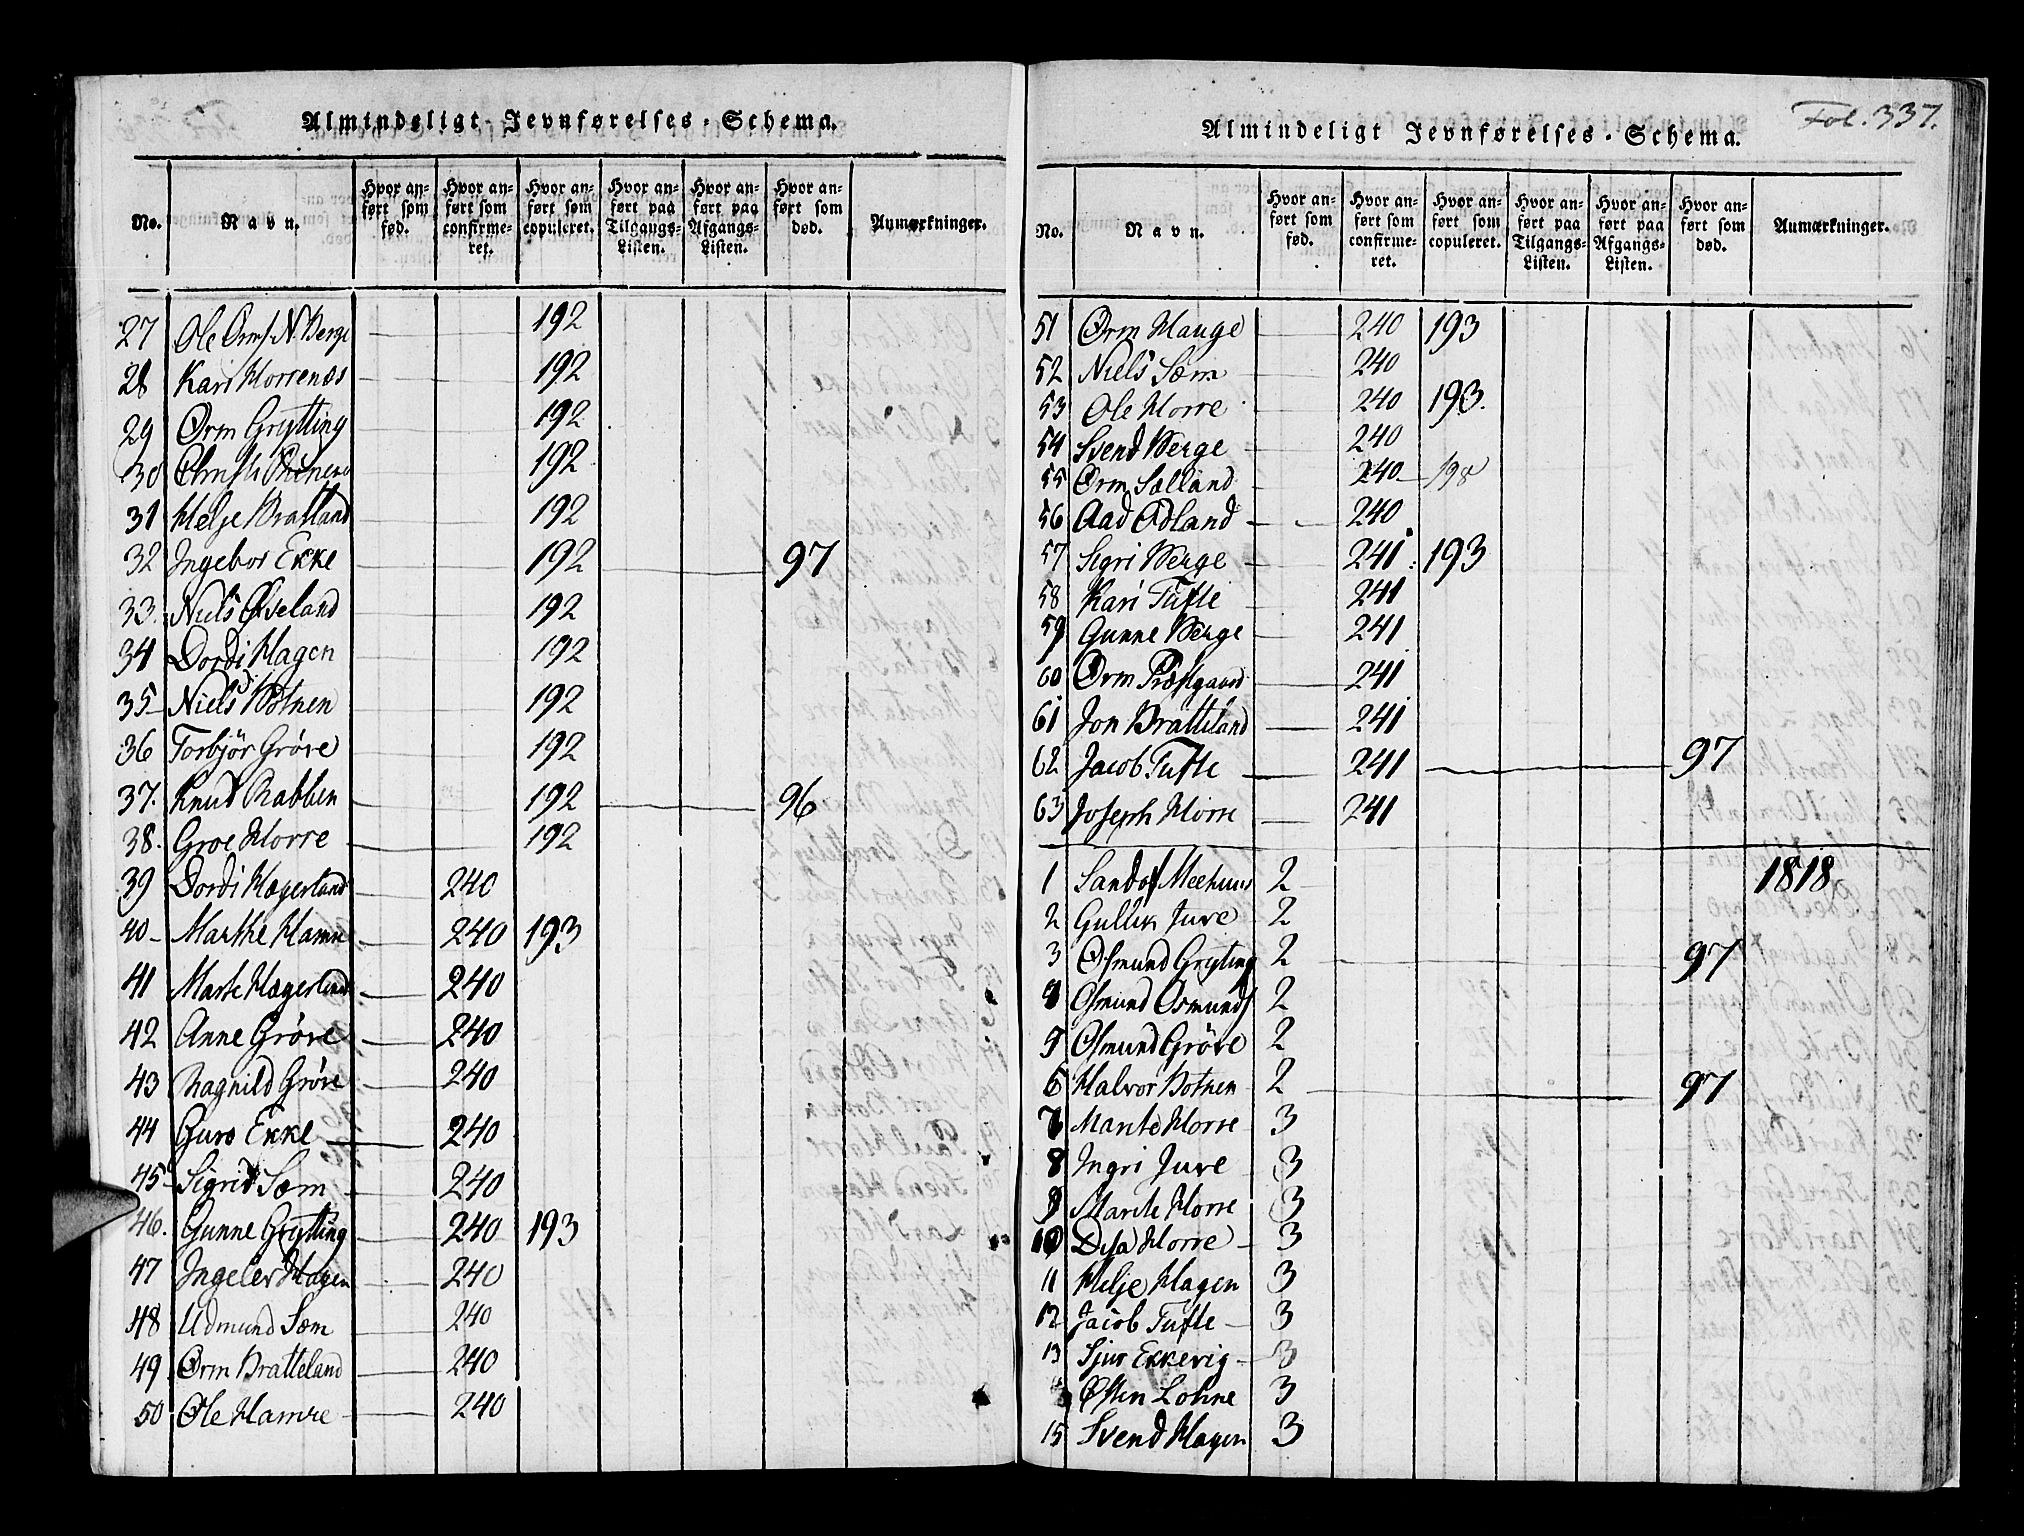 Almindeligt Jevnførelses-Schema.
No. Navn. Hvor anført som fød. Hvor anført som confirmeret. Hvor anført som copuleret. Hvor anført paa Tilgangs-Listen. Hvor anført paa Afgangs-Listen. Hvor anført som død. Anmærkninger.
27 Ole Ormf. N. Berge 192
28 Kari Horrenes 192
29 Orm Grytting 192
30 Christi 192
31 Helje Bratland 192
32 Ingebor Ekke 192 97
33. Niels Øvseland 192
34 Dordi Hagen 192
35 Niels Botnen 192
36 Torbjør Grøve 192
37. Knud Rabben 192 96
38. Groe Horre 192
39 Dordi Hægerland 240
40 Marthe Hamre 240 193
41 Marte Hægerland 240
42 Anne Grøve 240
43 Ragnild Grøve 240
44 Guro Ekke 240
45 Sigrid Sæm 240
46. Gunne Grytting 240 193
47 Ingeler Hagen 240
48 Udmund Sæm 240
49 Orm Bratteland 240
50 Ole Hamre 240
Fol. 337.
Almindeligt Jevnførelses-Schema.
No. Navn. Hvor anført som fød. Hvor anført som confirmeret. Hvor anført som copuleret. Hvor anført paa Tilgangs-Listen. Hvor anført paa Afgangs-Listen. Hvor anført som død. Anmærkninger.
51 Orm Hauge 240 193
52 Niels Sæm 240
53 Ole Horre 240 193.
54 Svend Berge 240
55 Orm Sælland 240 198
56 Aad Odland 240
57 Sigri Berge 241 193
58 Kari Tufte 241
59 Gunne Berge 241
60 Orm Præstgaard 241
61 Jon Bratteland 241
62 Jacob Tufte 241 97
63 Joseph Horre 241
1 Sandof Meehuus 2 1818
2 Gullik Jure 2
3 Osmund Gryting 2 97
4 Osmund Osmundf 2
5 Osmund Grøve 2
6 Halvor Botnen 2 97
7 Marite Horre 3
8 Ingri Jure 3
9 Marite Horre 3
10 Disa Horre 3
11 Helje Hagen 3
12 Jacob Tufte 3
13 Sjur Ekkevig 3
Østen Lohne 3
15 Svend Hagen 3